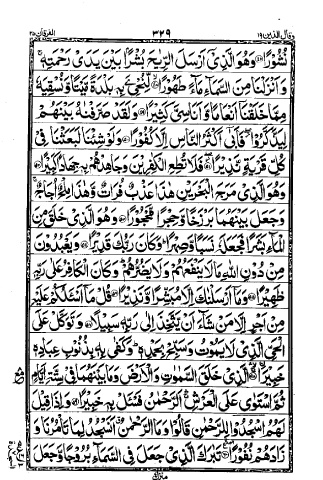 وقال الذین ١٩ ٣٢٩ الفرقان ٢٥
نُشُوْرًا وَهُوَ الَّذِیْۤ اَرْسَلَ الرِّیٰحَ بُشْرًۢا بَیْنَ یَدَیْ رَحْمَتِهٖ
وَاَنْزَلْنَا مِنَ السَّمَآءِ مَآءً طَهُوْرًا لِّنُحْیَِۧ بِهٖ بَلْدَةً مَّیْتًا وَّنُسْقِیَهٗ
مِمَّا خَلَقْنَاۤ اَنْعَامًا وَّاَنَاسِیَّ كَثِیْرًا وَلَقَدْ صَرَّفْنٰهُ بَیْنَهُمْ
لِیَذَّكَّرُوْا فَاَبٰۤی اَكْثَرُ النَّاسِ اِلَّا كُفُوْرًا وَلَوْ شِئْنَا لَبَعَثْنَا فِیْ
كُلِّ قَرْیَةٍ نَّذِیْرًا فَلَا تُطِعِ الْكٰفِرِیْنَ وَجَاهِدْهُمْ بِهٖ جِهَادًا كَبِیْرًا
وَهُوَ الَّذِیْ مَرَجَ الْبَحْرَیْنِ هٰذَا عَذْبٌ فُرَاتٌ وَّهٰذَا مِلْحٌ اُجَاجٌ
وَجَعَلَ بَیْنَهُمَا بَرْزَخًا وَّحِجْرًا مَّحْجُوْرًا وَهُوَ الَّذِیْ خَلَقَ مِنَ
الْمَآءِ بَشَرًا فَجَعَلَهٗ نَسَبًا وَّصِهْرًا وَكَانَ رَبُّكَ قَدِیْرًا وَیَعْبُدُوْنَ
مِنْ دُوْنِ اللّٰهِ مَا لَا یَنْفَعُهُمْ وَلَا یَضُرُّهُمْ وَكَانَ الْكَافِرُ عَلٰی رَبِّهٖ
ظَهِیْرًا وَمَاۤ اَرْسَلْنٰكَ اِلَّا مُبَشِّرًا وَّنَذِیْرًا قُلْ مَاۤ اَسْـَٔلُكُمْ عَلَیْهِ
مِنْ اَجْرٍ اِلَّا مَنْ شَآءَ اَنْ یَّتَّخِذَ اِلٰی رَبِّهٖ سَبِیْلًا وَتَوَكَّلْ عَلَی
الْحَیِّ الَّذِیْ لَا یَمُوْتُ وَسَبِّحْ بِحَمْدِهٖ وَكَفٰی بِهٖ بِذُنُوْبِ عِبَادِهٖ
خَبِیْرَا الَّذِیْ خَلَقَ السَّمٰوٰتِ وَالْاَرْضَ وَمَا بَیْنَهُمَا فِیْ سِتَّةِ اَیَّامٍ
ثُمَّ اسْتَوٰی عَلَی الْعَرْشِ اَلرَّحْمٰنُ فَسْـَٔلْ بِهٖ خَبِیْرًا وَاِذَا قِیْلَ
لَهُمُ اسْجُدُوْا لِلرَّحْمٰنِ قَالُوْا وَمَا الرَّحْمٰنُ اَنَسْجُدُ لِمَا تَاْمُرُنَا وَ
زَادَهُمْ نُفُوْرًا تَبٰرَكَ الَّذِیْ جَعَلَ فِی السَّمَآءِ بُرُوْجًا وَّجَعَلَ